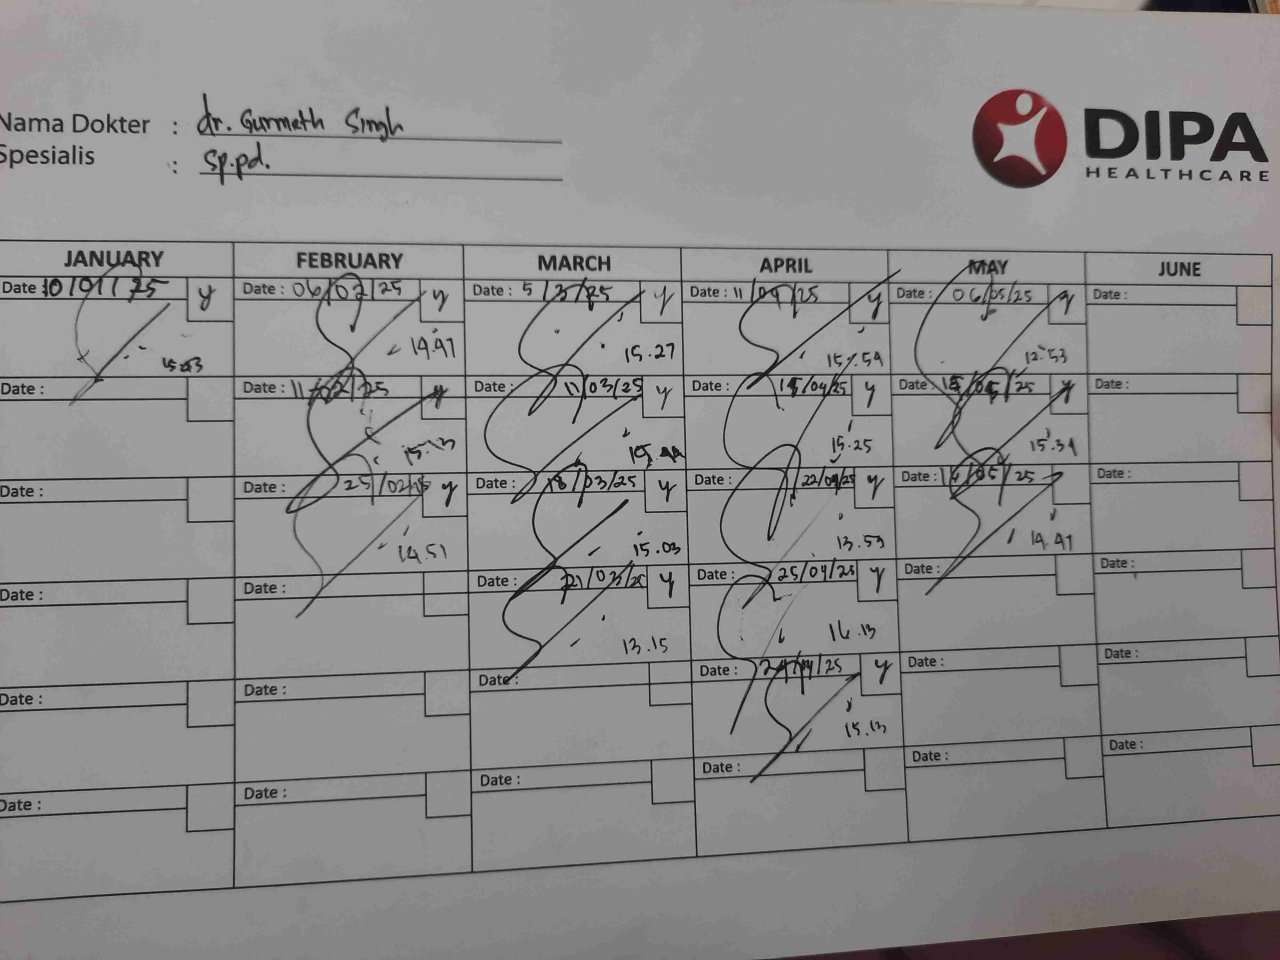 Nama Dokter : dr. Gurmeth Singh
Spesialis : Sp.pd.
DIPA
HEALTHCARE
JANUARY FEBRUARY MARCH APRIL MAY JUNE
Date : 10/01/25 y Date : 06/02/25 y Date : 5/3/25 y Date : 11/04/25 y Date : 06/05/25 y Date :
14.47 15.27 15.54 12.53
Date : Date : 11/02/25 y Date : 11/03/25 y Date : 15/04/25 y Date : 15/05/25 y Date :
15.13 15.25 15.34
Date : Date : 25/02/25 y Date : 18/03/25 y Date : 22/04/25 y Date : /05/25 Date :
14.51 15.03 13.53 14.47
Date : Date : Date : 21/03/25 y Date : 25/04/25 y Date : Date :
13.15 16.13
Date : Date : Date : Date : /25 y Date : Date :
15.13
Date : Date : Date : Date : Date : Date :